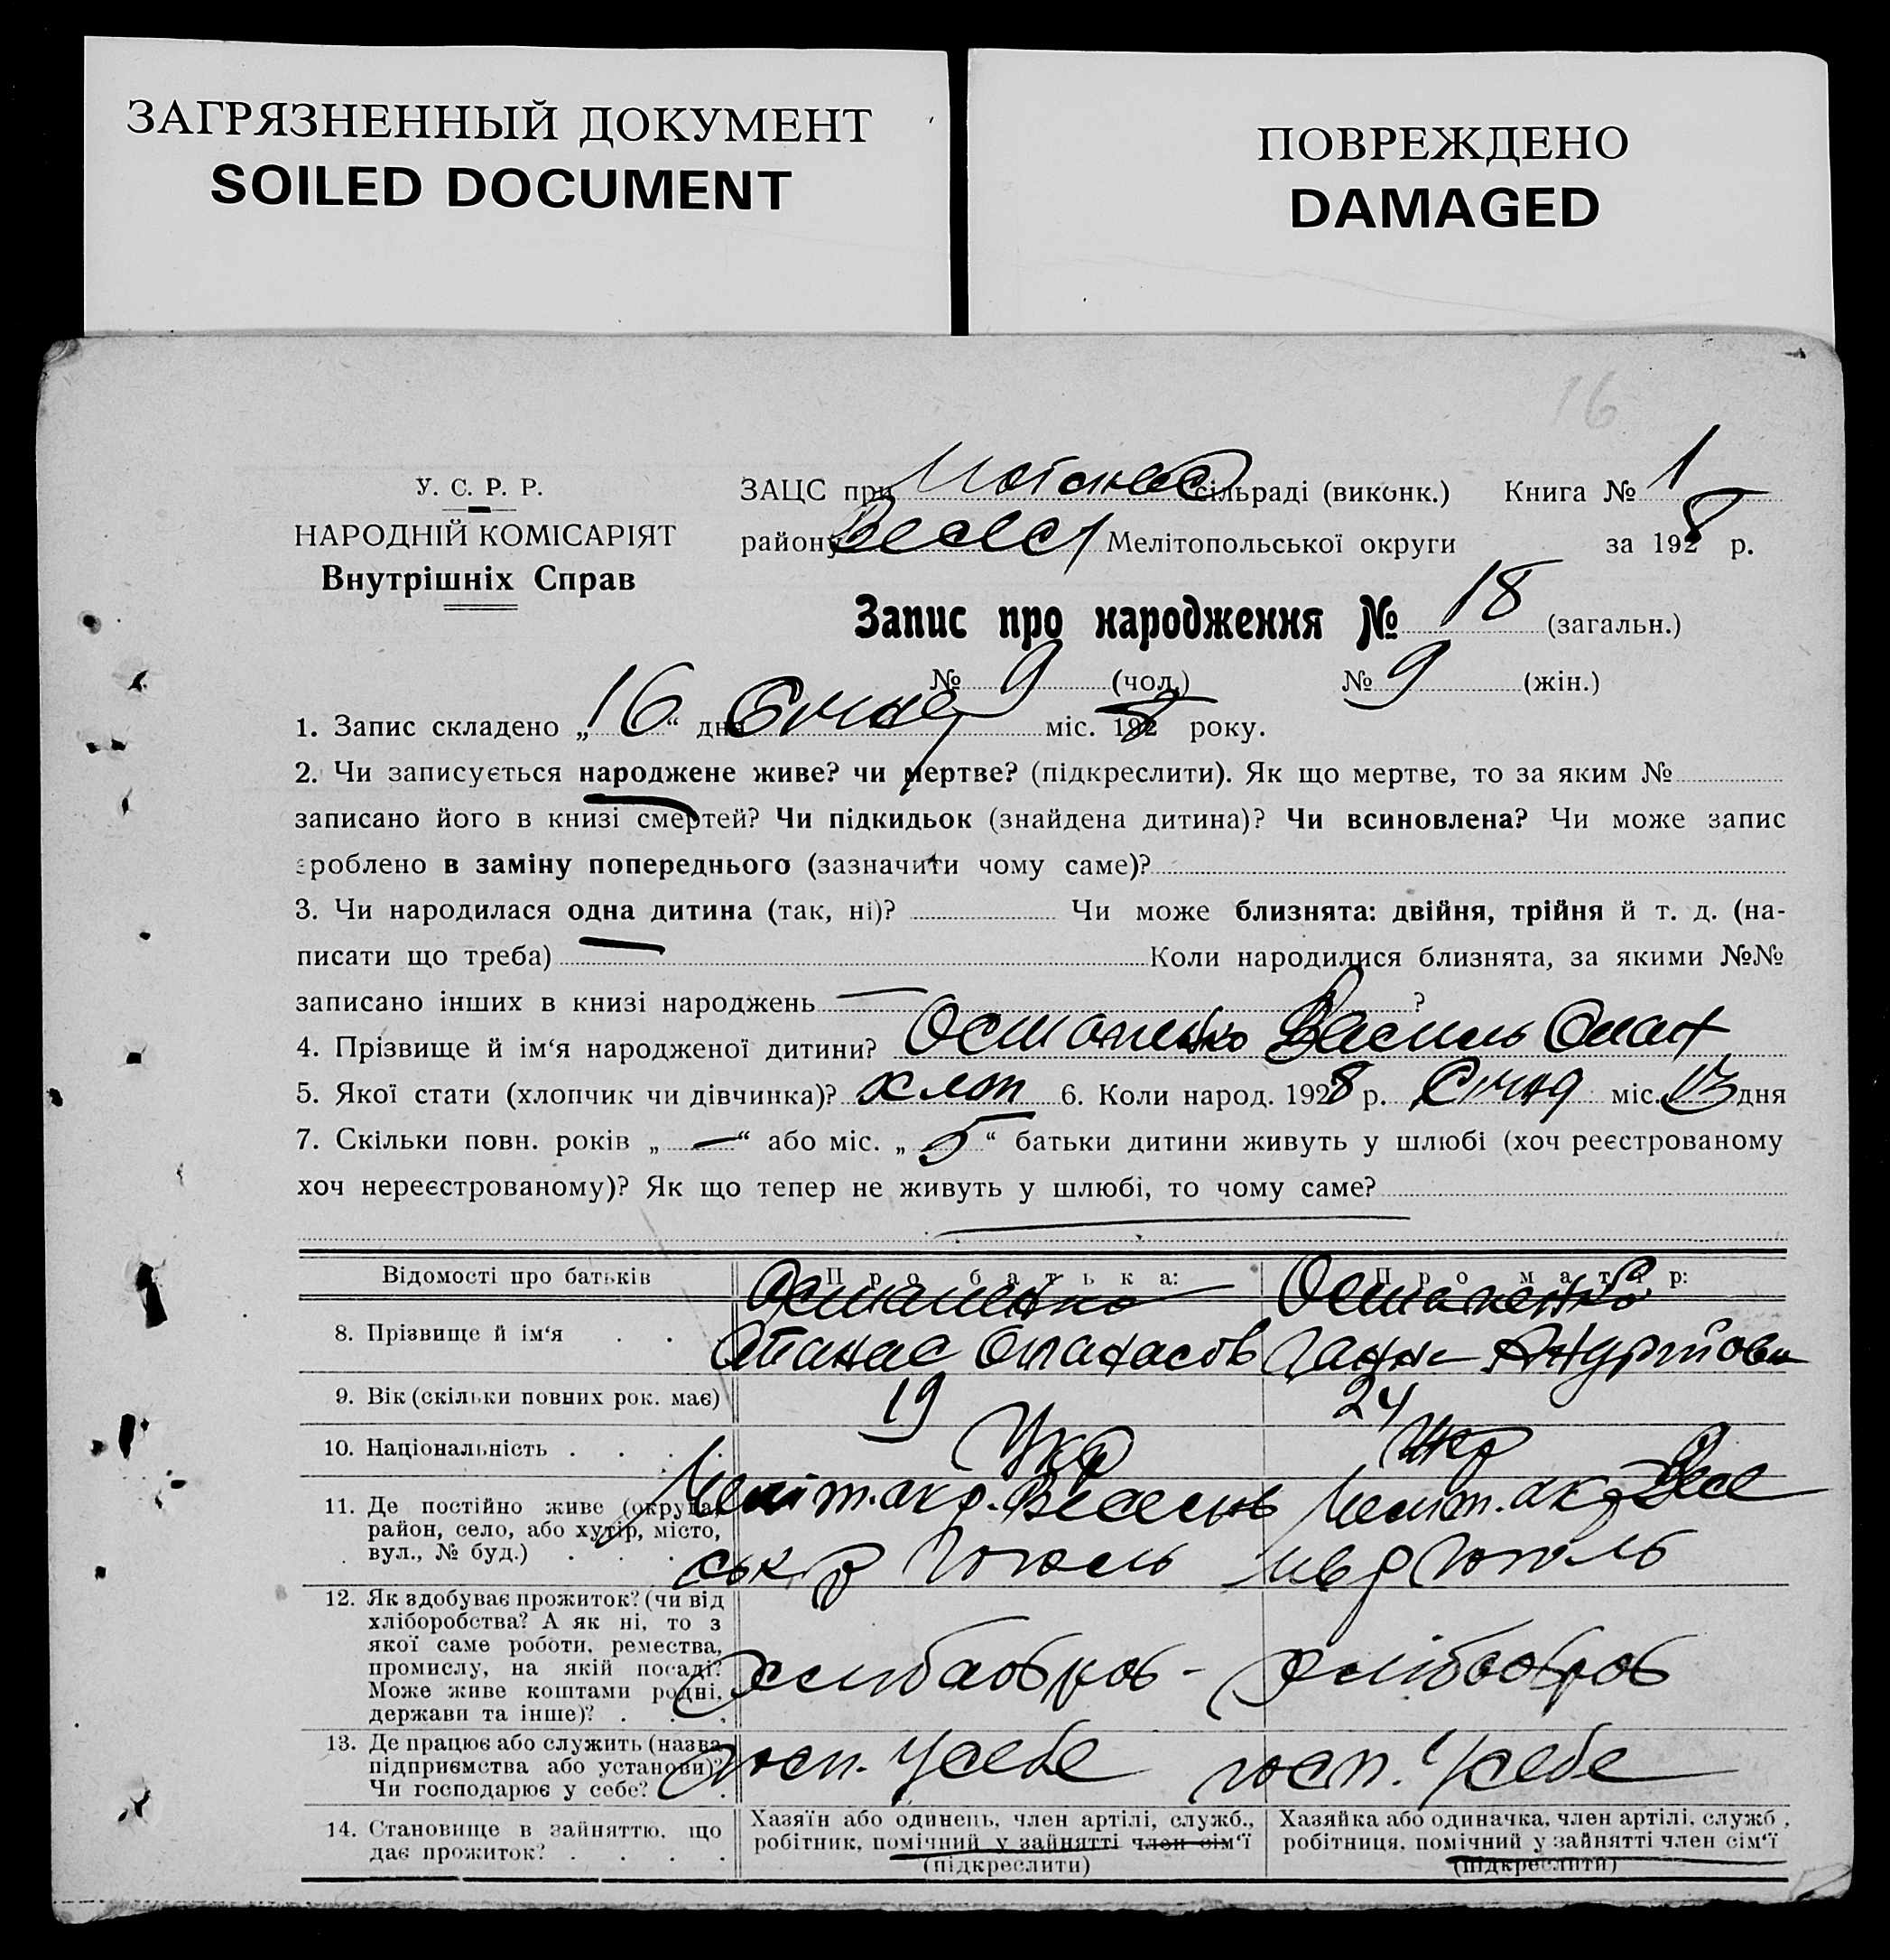 ЗАГРЯЗНЕННЫЙ ДОКУМЕНТ
SOILED DOCUMENT
ПОВРЕЖДЕНО
DAMAGED
16
У. С. Р. Р.
НАРОДНІЙ КОМІСАРІЯТ
Внутрішніх Справ
ЗАЦС при сільраді (виконк.) Книга № 1
району Весел Мелітопольської округи за 1928 р.
Запис про народження № 18 (загальн.)
№ 9 (чол.) № 9 (жін.)
1. Запис складено „16“ дня Січня міс. 1928 року.
2. Чи записується народжене живе? чи мертве? (підкреслити). Як що мертве, то за яким №
записано його в книзі смертей? Чи підкидьок (знайдена дитина)? Чи всиновлена? Чи може запис
зроблено в заміну попереднього (зазначити чому саме)?
3. Чи народилася одна дитина (так, ні)? Чи може близнята: двійня, трійня й т. д. (на-
писати що треба) Коли народилися близнята, за якими №№
записано інших в книзі народжень — ?
4. Прізвище й ім‘я народженої дитини? Остапенко Василь Опан
5. Якої стати (хлопчик чи дівчинка)? хлоп 6. Коли народ. 1928 р. Січня міс. 13 дня
7. Скільки повн. років „—“ або міс. „5“ батьки дитини живуть у шлюбі (хоч реєстрованому
хоч нереєстрованому)? Як що тепер не живуть у шлюбі, то чому саме?
Відомості про батьків Про батька: Про матір:
Остапенко Остапенко
8. Прізвище й ім‘я Опанас Опанасов Ганна Андрійовн
9. Вік (скільки повних рок. має) 19 24
10. Національність Укр Укр
11. Де постійно живе (округа, район, село, або хутір, місто, вул., № буд.)
Меліт. окр. Веселів Меліт. ок. Весе
ськ р лів р
12. Як здобуває прожиток? (чи від хліборобства? А як ні, то з якої саме роботи, ремества, промислу, на якій посаді? Може живе коштами родні, держави та інше)?
хлібороб - хлібороб
13. Де працює або служить (назва підприємства або установи)? Чи господарює у себе?
госп. у себе госп. у себе
14. Становище в зайняттю, що дає прожиток?
Хазяїн або одинець, член артілі, служб., робітник, помічний у зайнятті член сім‘ї (підкреслити)
Хазяйка або одиначка, член артілі, служб, робітниця, помічний у зайнятті член сім‘ї (підкреслити)